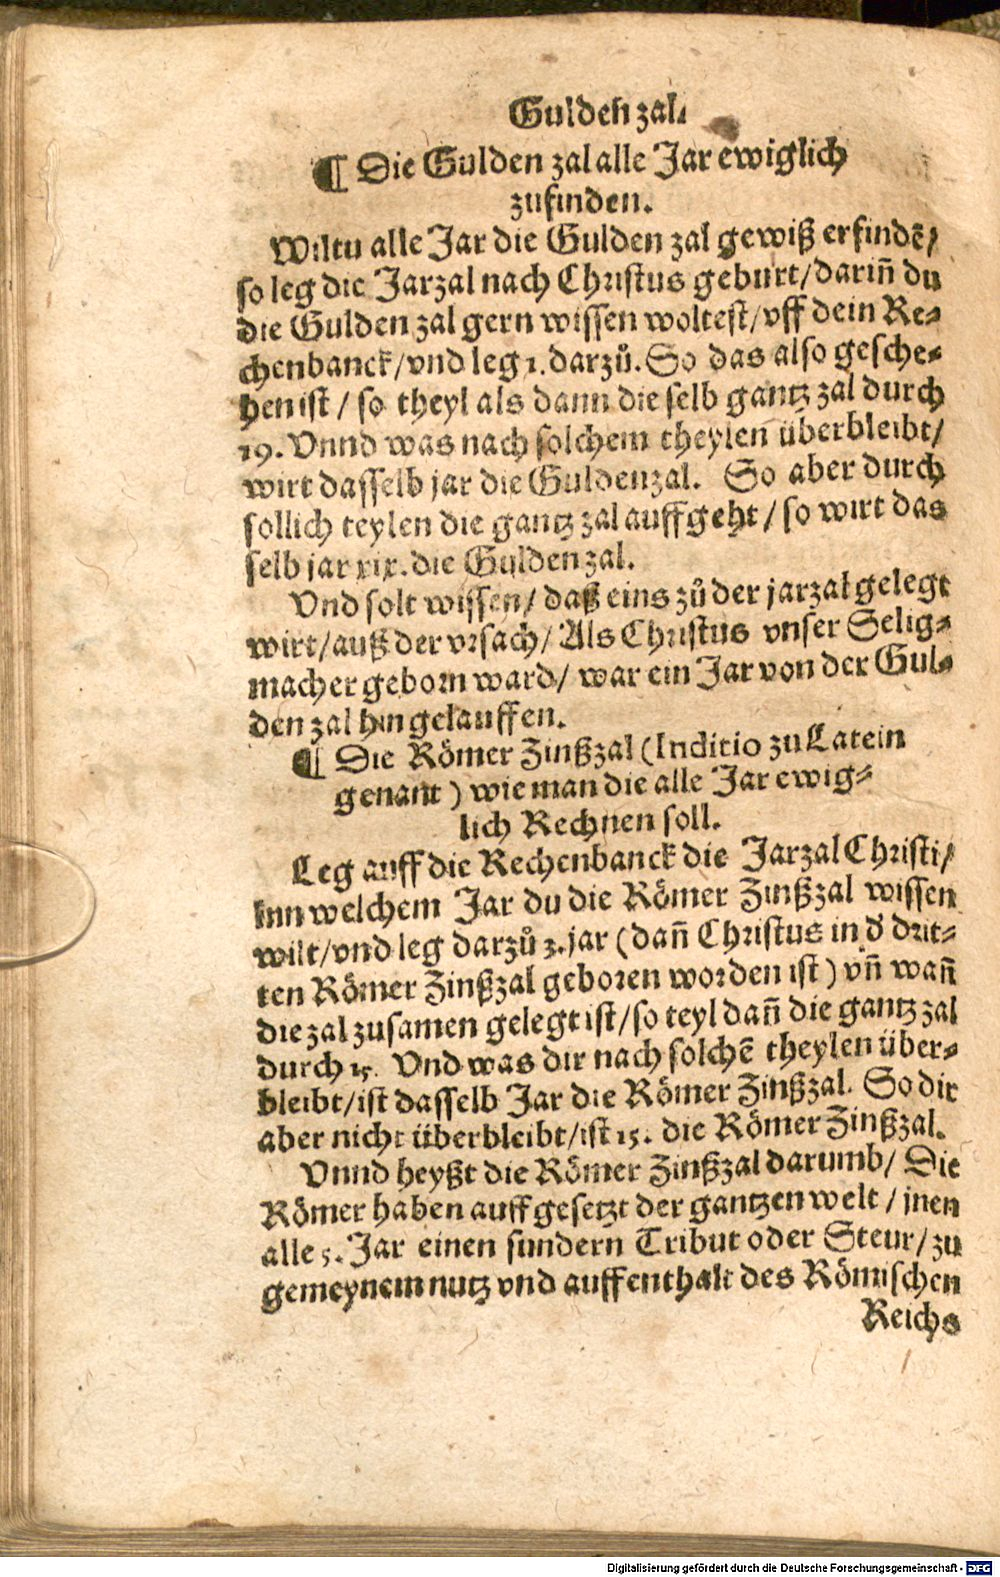 Gulden zal.
¶ Die Gulden zal alle Jar ewiglich
zufinden.
Wiltu alle Jar die Gulden zal gewiß erfindē/
so leg die Jarzal nach Christus geburt/darin̄ du
die Gulden zal gern wissen woltest/vff dein Re-
chenbanck/vnd leg 1. darzů. So das also gesche-
hen ist / so theyl als dann die selb gantz zal durch
19. Vnnd was nach solchem theylen überbleibt/
wirt dasselb jar die Guldenzal. So aber durch
sollich teylen die gantz zal auffgeht / so wirt das
selb jar xix. die Guldenzal.
Vnd solt wissen/ daß eins zů der jarzal gelegt
wirt/auß der vrsach/ Als Christus vnser Selig-
macher geborn ward/ war ein Jar von der Gul-
den zal hin gelauffen.
¶ Die Römer Zinßzal (Inditio zu Latein
genant ) wie man die alle Jar ewig-
lich Rechnen soll.
Leg auff die Rechenbanck die Jarzal Christi/
Inn welchem Jar du die Römer Zinßzal wissen
wilt/vnd leg darzů 3. jar (dan̄ Christus in d̕ drit-
ten Römer Zinßzal geboren worden ist ) vn̄ wan̄
die zal zusamen gelegt ist/so teyl dan̄ die gantz zal
durch 15. Vnd was dir nach solchē theylen über-
bleibt/ist dasselb Jar die Römer Zinßzal. So dir
aber nicht überbleibt/ist 15. die Römer Zinßzal.
Vnnd heyßt die Römer Zinßzal darumb/ Die
Römer haben auffgesetzt der gantzen welt / jnen
alle 5. Jar einen sundern Tribut oder Steur/ zu
gemeynem nutz vnd auffenthalt des Römischen
Reichs
Digitalisierung gefördert durch die Deutsche Forschungsgemeinschaft - DFG